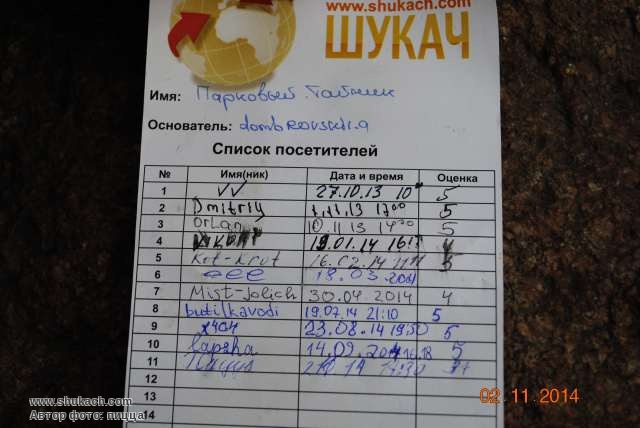 www.shukach.com
ШУКАЧ
Имя: Парковый Тайник
Основатель: dombrovskir.a
Список посетителей
№ Имя(ник) Дата и время Оценка
1 27.10.13 10 5
2 Dmitriy 1.11.13 17:00 5
3 Orlan 10.11.13 5
4 19.01.14 4
5 Kot-krut 16.02.14 5
6 eee 18.03.2014
7 Mist-jolich 30.04.2014 4
8 butilkavodi 19.07.14 21:10 5
9 23.08.14 19:50 5
10 lapsha 14.09.2014 16.18 5
11
12
13
14
02 11 2014
www.shukach.com
Автор фото: пицца